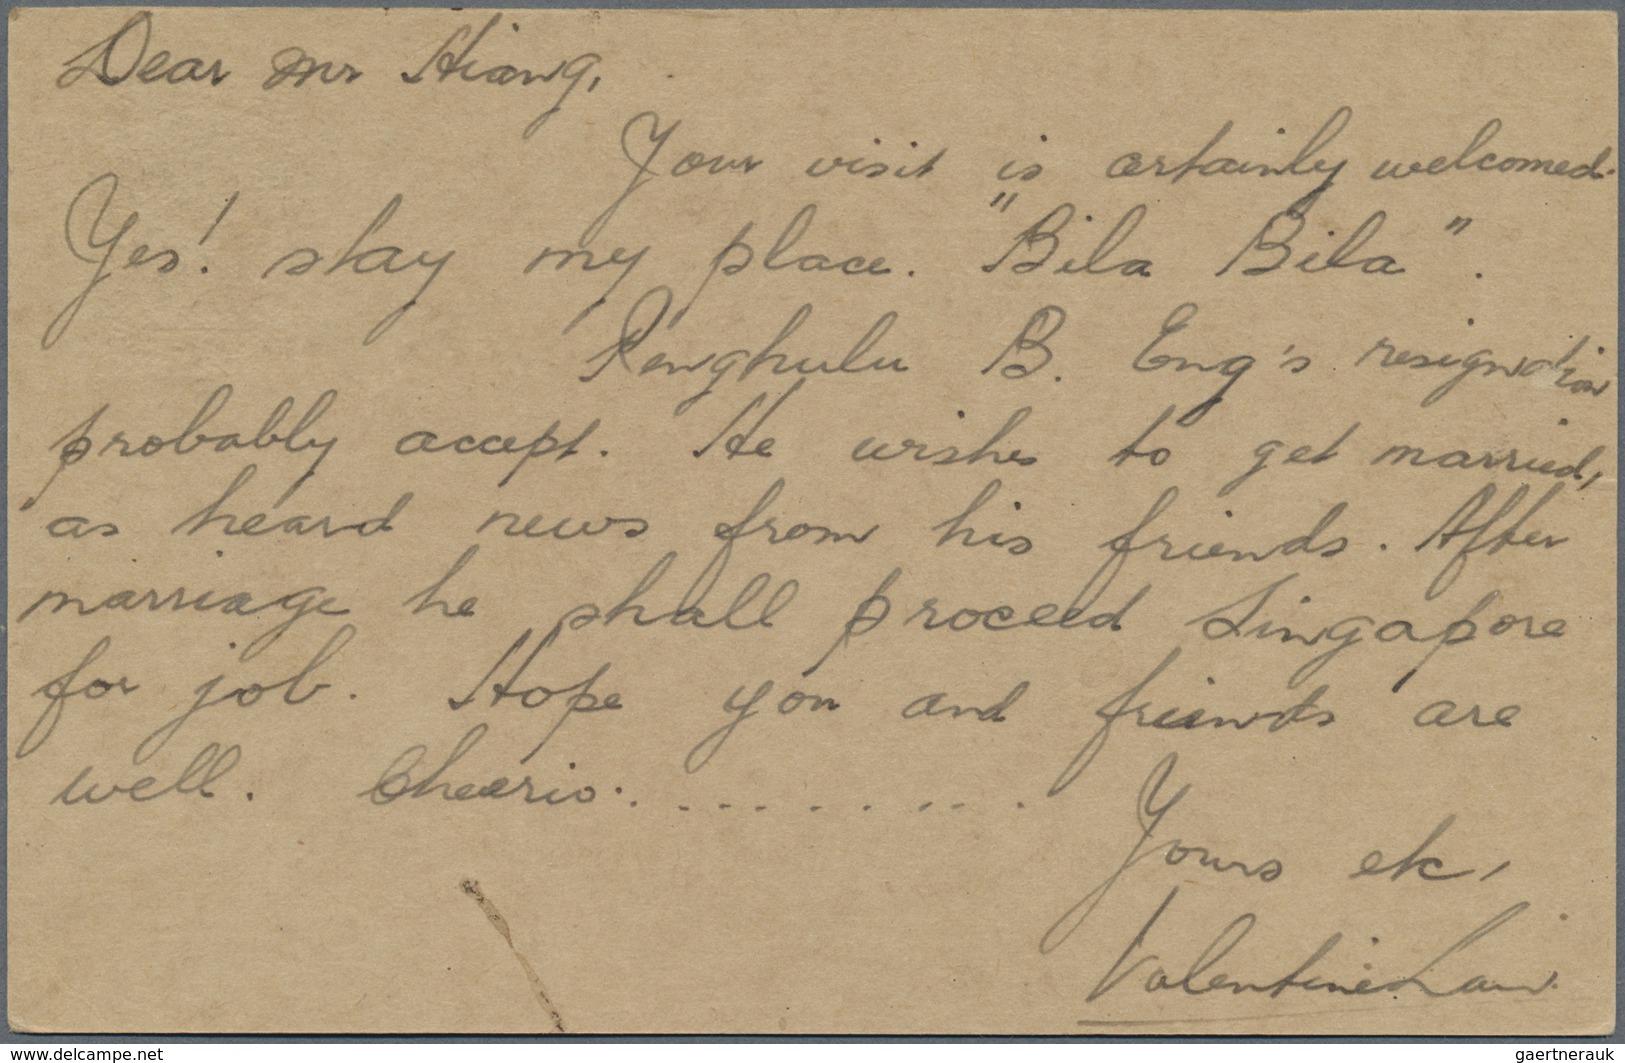 Dear Mr Hiang,
Your visit is certainly welcomed.
Yes! stay my place. "Bila Bila".
Penghulu B. Eng's resignation
probably accept. He wishes to get married,
as heard news from his friends. After
marriage he shall proceed Singapore
for job. Hope you and friends are
well. Cheerio. . . . . . . . . .
Yours etc,
Valentine Law.
www.delcampe.net
gaertnerauk